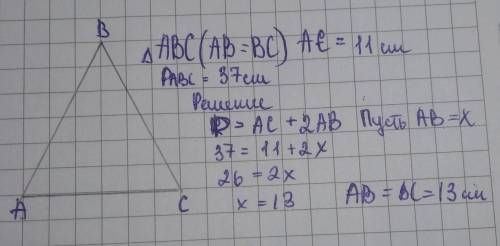 B
△ABC (AB=BC) AC = 11 см
PABC = 37 см
Решение
P = AC + 2AB Пусть AB = x
37 = 11 + 2x
26 = 2x
x = 13 AB = BC = 13 см
A C